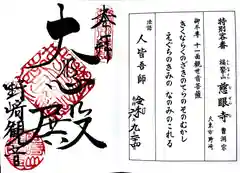 奉拝
大悲殿
野崎観音
特別客番
福聚山 慈眼寺 曹洞宗
大東市野崎
御本尊 十一面観世音菩薩
きくならくのざきのてらのそのむかし
えぐちのきみの なみのみぐれる
法話
人皆吾師